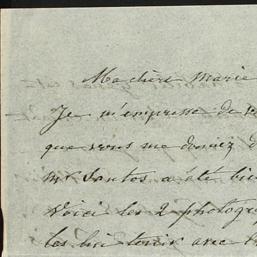 Ma chère Marie
Je m'empresse de
que vous me donniez d
Mr Santos a été bie
Voici les 2 photogr
les lui avec